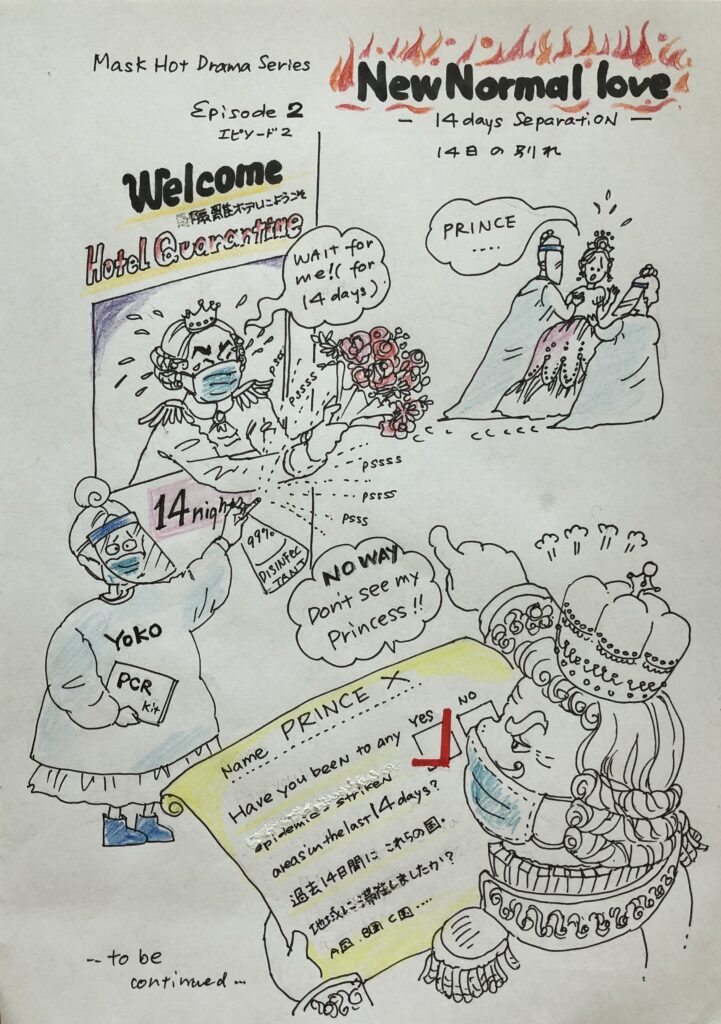 Mask Hot Drama Series
New Normal love
— 14 days Separation —
14日の別れ
Episode 2
エピソード2
Welcome
隔離ホテルにようこそ
Hotel Quarantine
WAIT for
me!( for
14 days)
PRINCE
....
psss
pssss
pssss
pssss
psss
14 nights
99%
DISINFEC
TANT
YOKO
PCR
Kit
NO WAY
Don't see my
Princess!!
Name PRINCE X
Yes
NO
Have you been to any
epidemic-striken
areas in the last 14 days?
過去14日間にこれらの国・
地域に滞在しましたか?
A国・B国 C国....
-- to be
continued...